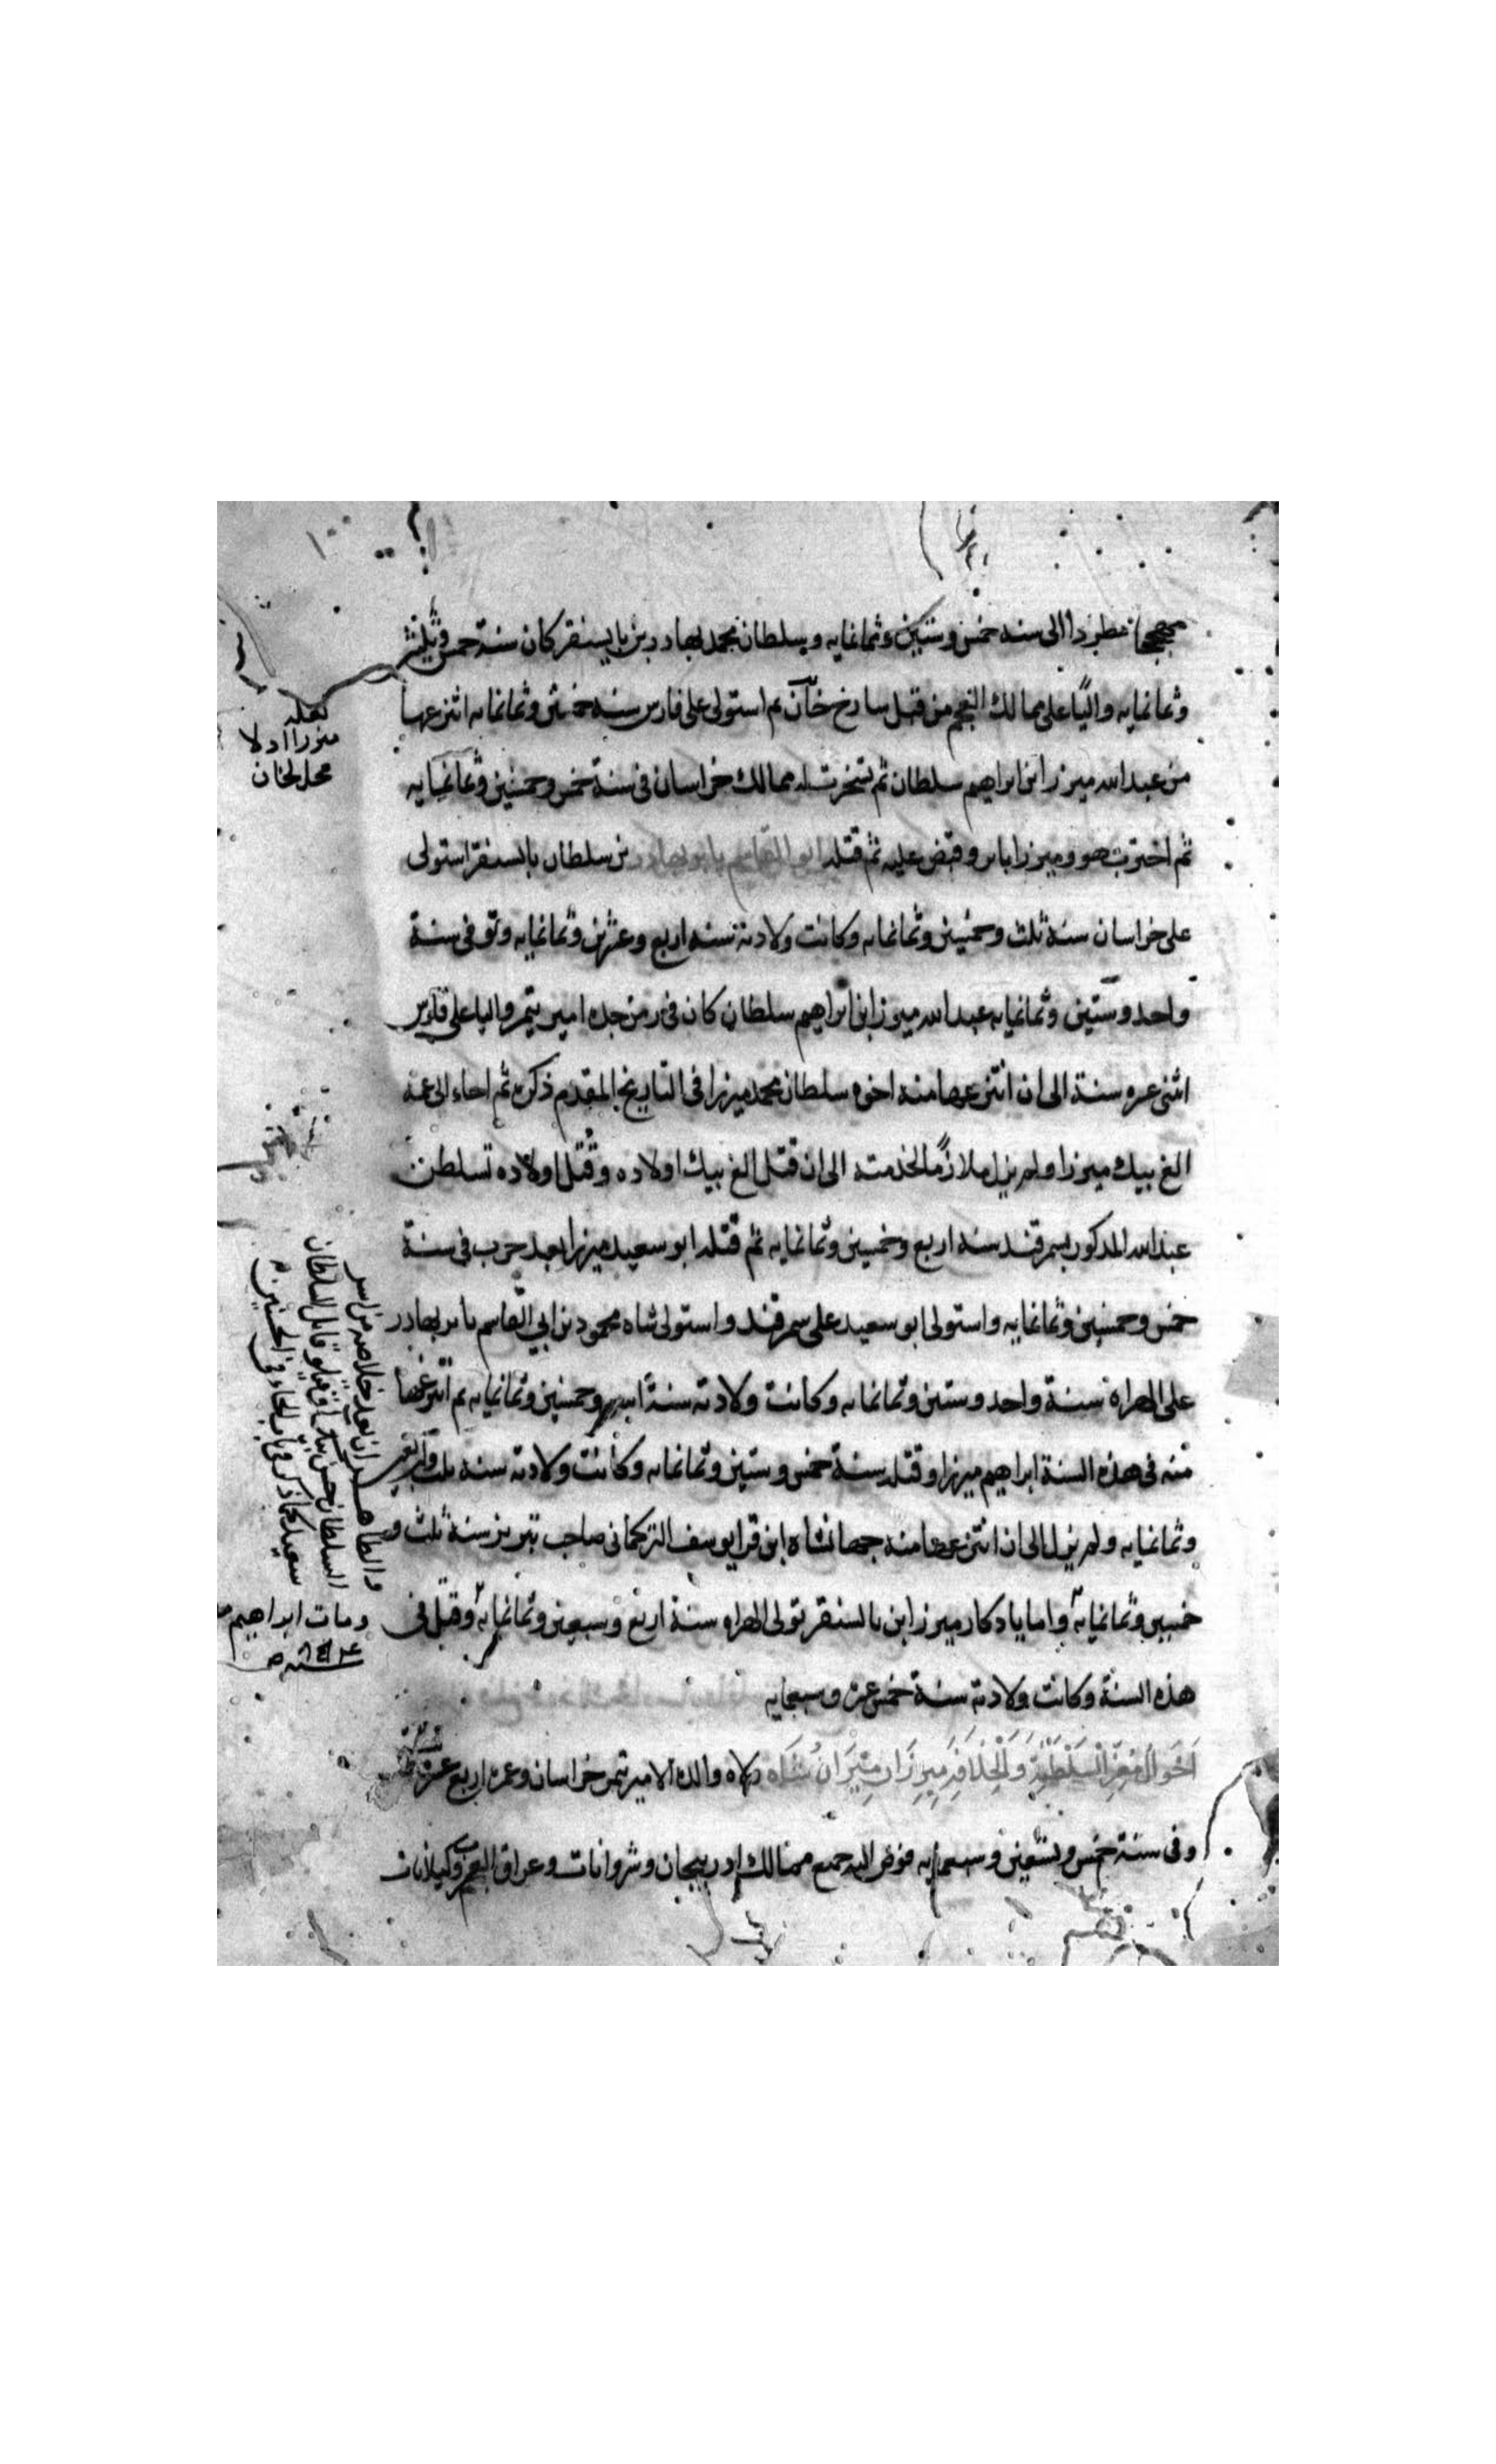 مطرودا الى سنه خمس وستين وثمانمايه وسلطان محمد بهادر بن بايسنقر كان سنة خمس وثلثين
وثمانمايه واليا على ممالك العجم من قبل شارخ خان ثم استولى على فارس سنة خمسين وثمانمايه انتزعها
من عبد الله ميرزا ابن ابراهيم سلطان ثم تسخرت له ممالك خراسان فى سنة خمس وخمسين وثمانمايه
ثم احترب هو وميرزا بابر وقبض عليه ثم قتله ابو القاسم بابر بهادر بن سلطان بايسنقر استولى
على خراسان سنة ثلث وخمسين وثمانمايه وكانت ولادته سنه اربع وعشرين وثمانمايه وتوفى سنة
واحد وستين وثمانمايه عبد الله ميرزا ابن ابراهيم سلطان كان فى زمن جده امير تيمر واليا على فارس
اثنى عشره سنة الى ان انتزعها منه اخوه سلطان محمد ميرزا فى التاريخ المقدم ذكره ثم اجاء الى عمه
الغ بيك ميرزا ولم يزل ملازما لخدمته الى ان قتل الغ بيك اولاده وقتل اولاده تسلطن
عبد الله المذكور بسمرقند سنه اربع وخمسين وثمانمايه ثم قتله ابو سعيد ميرزا بعد حرب فى سنة
خمس وخمسين وثمانمايه واستولى ابو سعيد على سمرقند واستولى شاه محمود بن ابي القاسم بابر بهادر
على الهراه سنة واحد وستين وثمانمايه وكانت ولادته سنة وخمسين وثمانمايه ثم انتزعها
منه فى هذه السنة ابراهيم ميرزا وقتله سنة خمس وستين وثمانمايه وكانت ولادته سنه ثلث واربعين
وثمانمايه ولم يزل الى ان انتزعها منه جهانشاه ابن قرايوسف التركمانى صاحب تبريز سنة ثلث و
خمسين وثمانمايه واما يادكار ميرزا ابن بايسنقر تولى الهراه سنة اربع وسبعين وثمانمايه وقتل فى
هذه السنة وكانت ولادته سنة خمس عشر وسبعمايه
احوال معز السلطنة والخلافة ميرزا ميران شاه ولاه والده الامير تيمر خراسان وعمره اربع عشرة سنة
وفى سنة خمس وتسعين وسبعمايه فوض اليه جميع ممالك ادربيجان وشروانات وعراق العجم وكيلانات
لعله
ميرزا اولا
محل لخان
والظاهر ان بعد خلاصه من اسر
السلطان حسن بيك قابل السلطان
سعيد كما ذكر فى باب الحاء فى الحسنين
ومات ابراهيم
سنه ٨٦٣